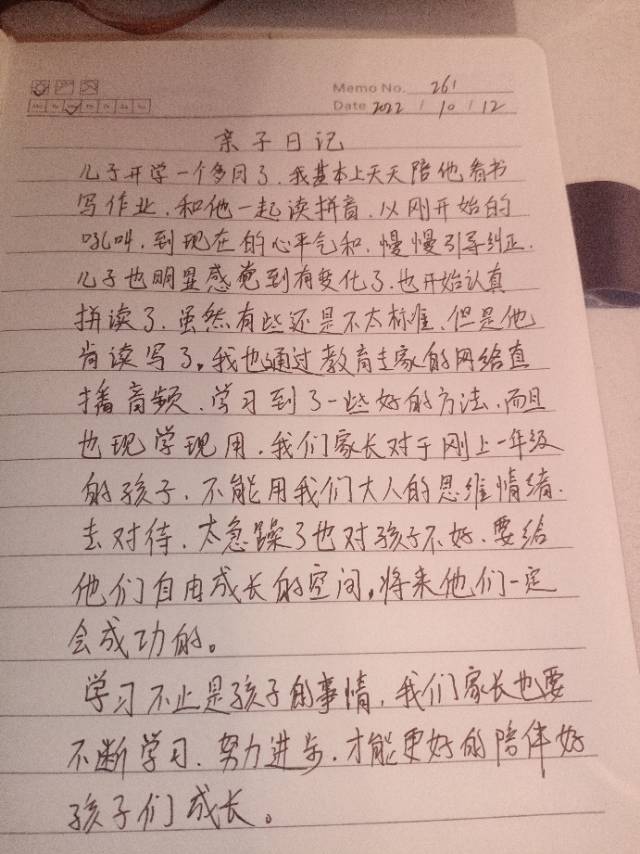 Memo No. 261
Mo Tu We Th Fr Sa Su
Date 2022 / 10 / 12
亲子日记
儿子开学一个多月了，我基本上天天陪他看书
写作业，和他一起读拼音，从刚开始的
吼叫，到现在的心平气和，慢慢引导纠正，
儿子也明显感觉到有变化了，也开始认真
拼读了，虽然有些还是不太标准，但是他
肯读写了。我也通过教育专家的网络直
播音频，学习到了一些好的方法，而且
也现学现用，我们家长对于刚上一年级
的孩子，不能用我们大人的思维情绪，
去对待，太急躁了也对孩子不好，要给
他们自由成长的空间，将来他们一定
会成功的。
学习不止是孩子的事情，我们家长也要
不断学习，努力进步，才能更好的陪伴好
孩子们成长。